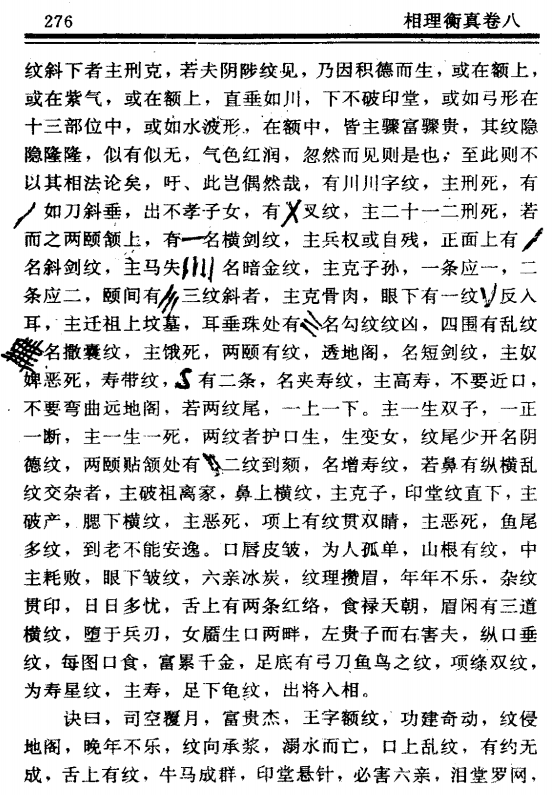 276 相理衡真卷八
纹斜下者主刑克，若夫阴陟纹见，乃因积德而生，或在额上，
或在紫气，或在额上，直垂如川，下不破印堂，或如弓形在
十三部位中，或如水波形，在额中，皆主骤富骤贵，其纹隐
隐隆隆，似有似无，气色红润，忽然而见则是也；至此则不
以其相法论矣，吁、此岂偶然哉，有川川字纹，主刑死，有
如刀斜垂，出不孝子女，有叉纹，主二十一二刑死，若
而之两颐颔上，有一名横剑纹，主兵权或自残，正面上有
名斜剑纹，主马失名暗金纹，主克子孙，一条应一，二
条应二，颐间有三纹斜者，主克骨肉，眼下有一纹反入
耳，主迁祖上坟墓，耳垂珠处有名勾纹纹凶，四围有乱纹
名撒囊纹，主饿死，两颐有纹，透地阁，名短剑纹，主奴
婢恶死，寿带纹，有二条，名夹寿纹，主高寿，不要近口，
不要弯曲远地阁，若两纹尾，一上一下。主一生双子，一正
一断，主一生一死，两纹者护口生，生变女，纹尾少开名阴
德纹，两颐贴颔处有二纹到颏，名增寿纹，若鼻有纵横乱
纹交杂者，主破祖离家，鼻上横纹，主克子，印堂纹直下，主
破产，腮下横纹，主恶死，项上有纹贯双睛，主恶死，鱼尾
多纹，到老不能安逸。口唇皮皱，为人孤单，山根有纹，中
主耗败，眼下皱纹，六亲冰炭，纹理攒眉，年年不乐，杂纹
贯印，日日多忧，舌上有两条红络，食禄天朝，眉闲有三道
横纹，堕于兵刃，女靥生口两畔，左贵子而右害夫，纵口垂
纹，每图口食，富累千金，足底有弓刀鱼鸟之纹，项绦双纹，
为寿星纹，主寿，足下龟纹，出将入相。
诀曰，司空覆月，富贵杰，王字额纹，功建奇动，纹侵
地阁，晚年不乐，纹向承浆，溺水而亡，口上乱纹，有约无
成，舌上有纹，牛马成群，印堂悬针，必害六亲，泪堂罗网，